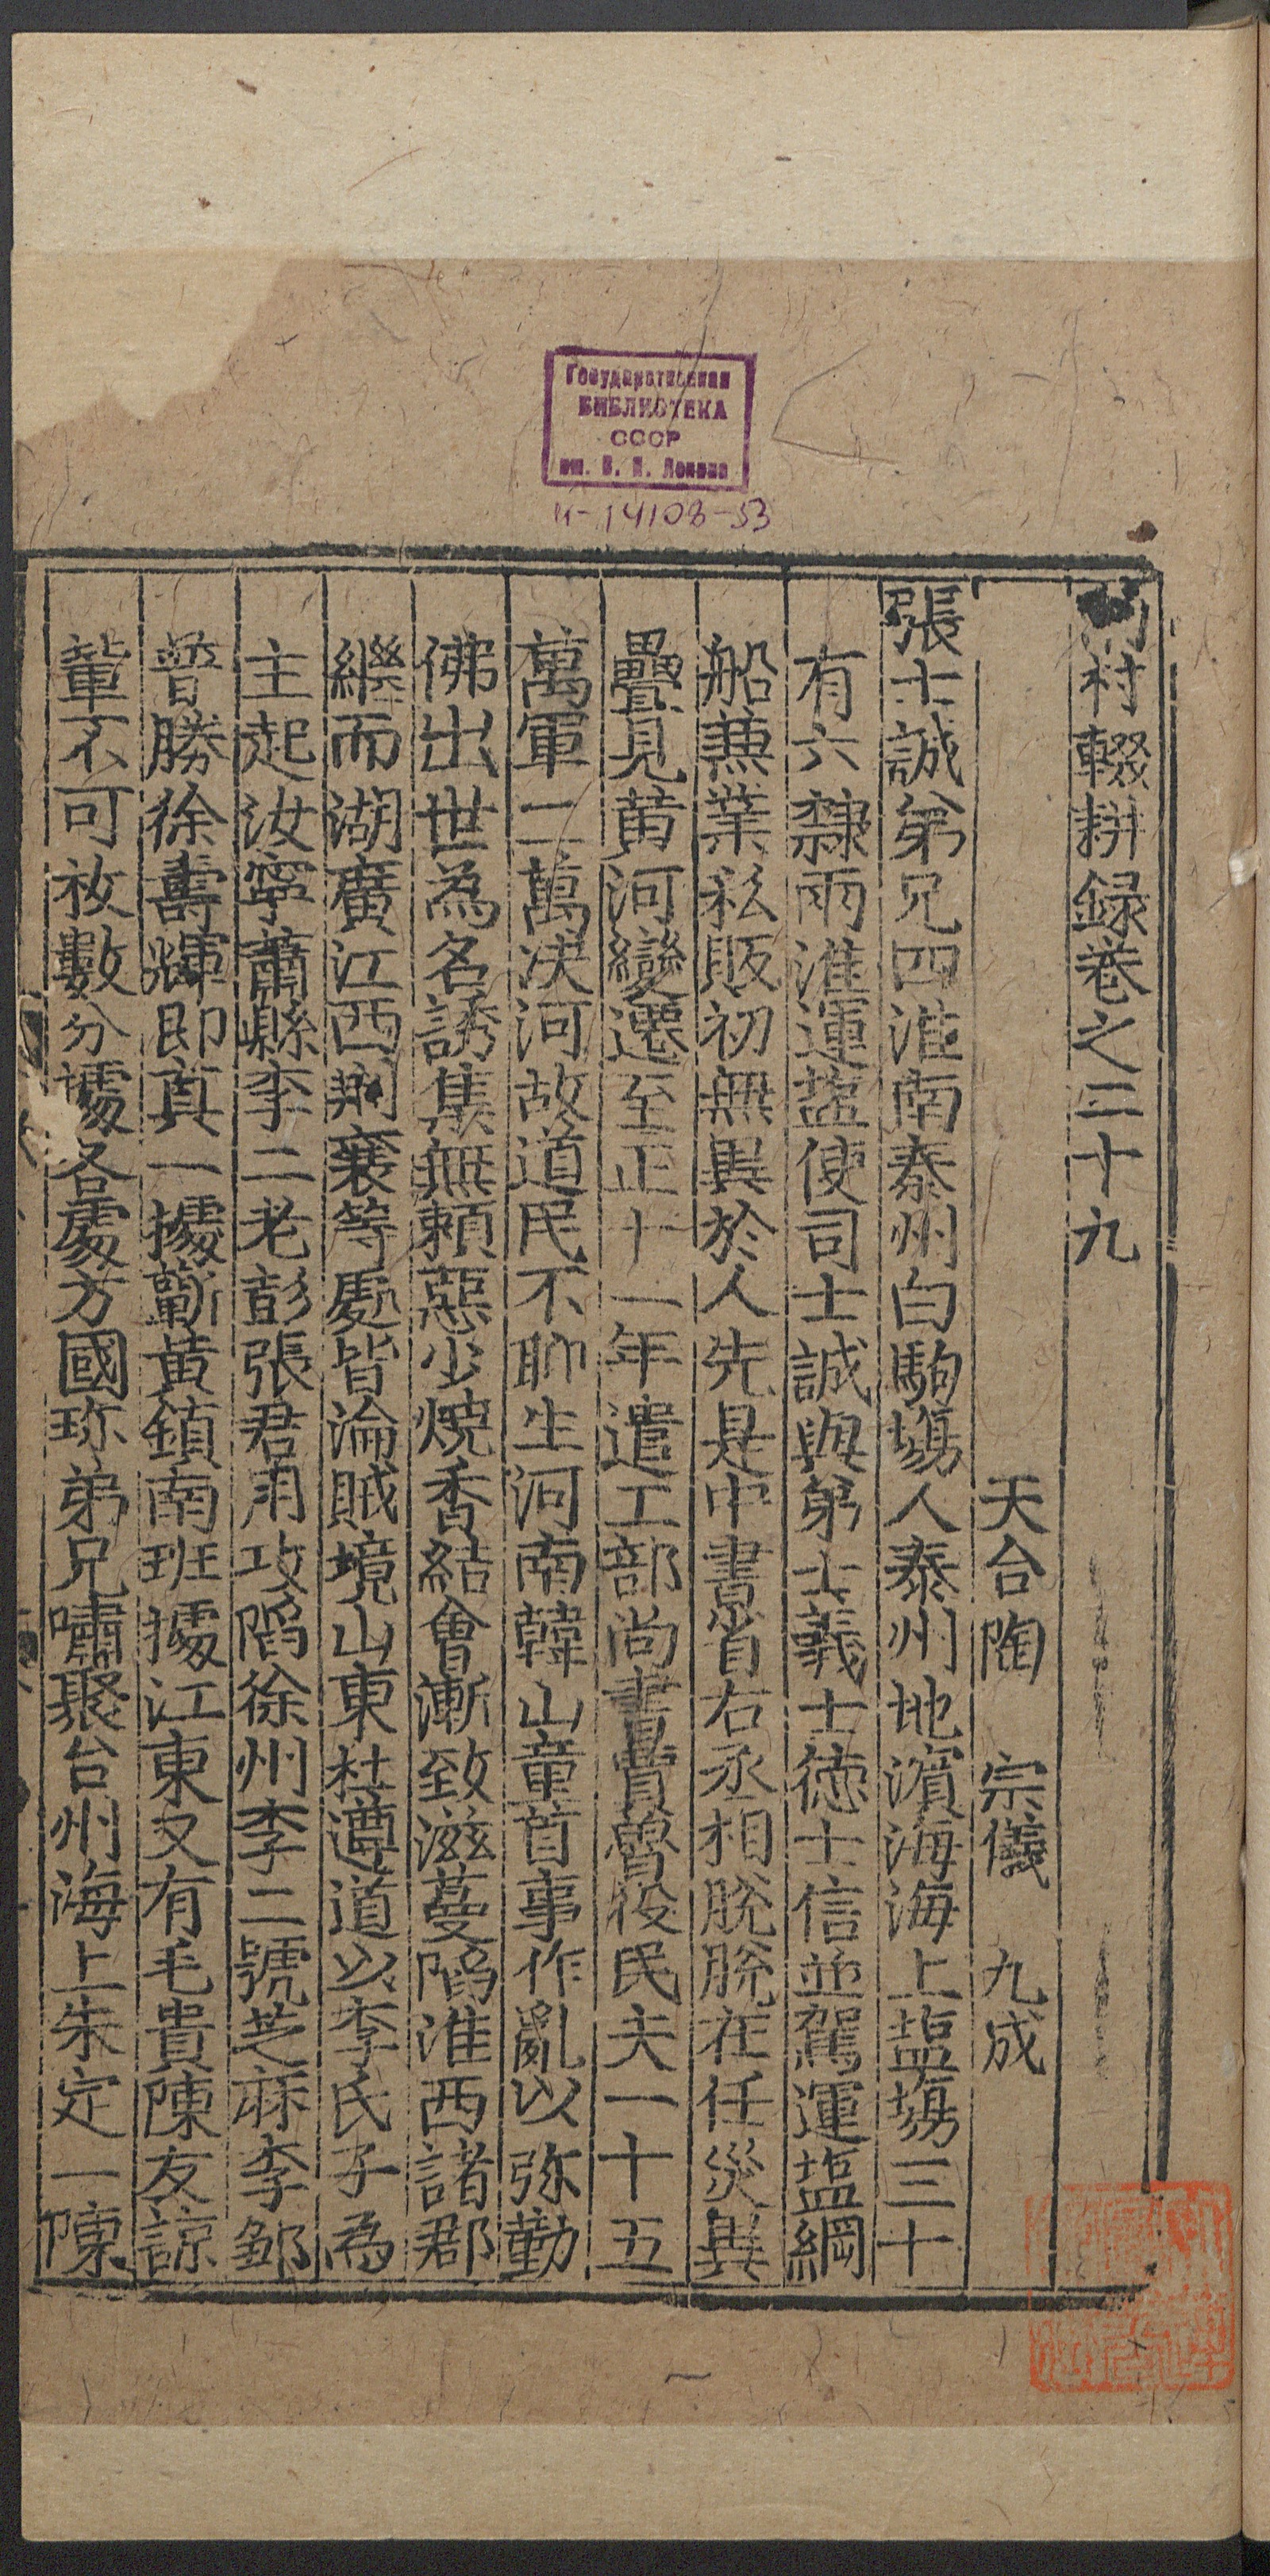 Государственная
БИБЛИОТЕКА
СССР
им. В. И. Ленина
и-14108-53
村輟耕録巻之二十九
天台陶 宗儀 九成
張士誠弟兄四淮南泰州白駒塲人泰州地濵海海上塩塲三十
有六隸兩淮運塩使司士誠與弟士義士徳士信並駕運塩綱
船兼業私販初無異於人先是中書省右丞相脫脫在任災異
疊見黄河變遷至正十一年遣工部尚書賈魯役民夫一十五
萬軍二萬决河故道民不聊生河南韓山童首事作亂以弥勤
佛出世為名誘集無頼惡少燒香結會漸致滋蔓陷淮西諸郡
繼而湖廣江西荆襄等處皆淪賊境山東杜遵道以李氏子為
主起汝寧蕭縣李二老彭張君用攻陷徐州李二號芝麻李鄒
晉勝徐壽輝即真一據蘄黄鎮南班據江東又有毛貴陳友諒
輩不可枚數分據各處方國珎弟兄嘯聚台州海上朱定一陳